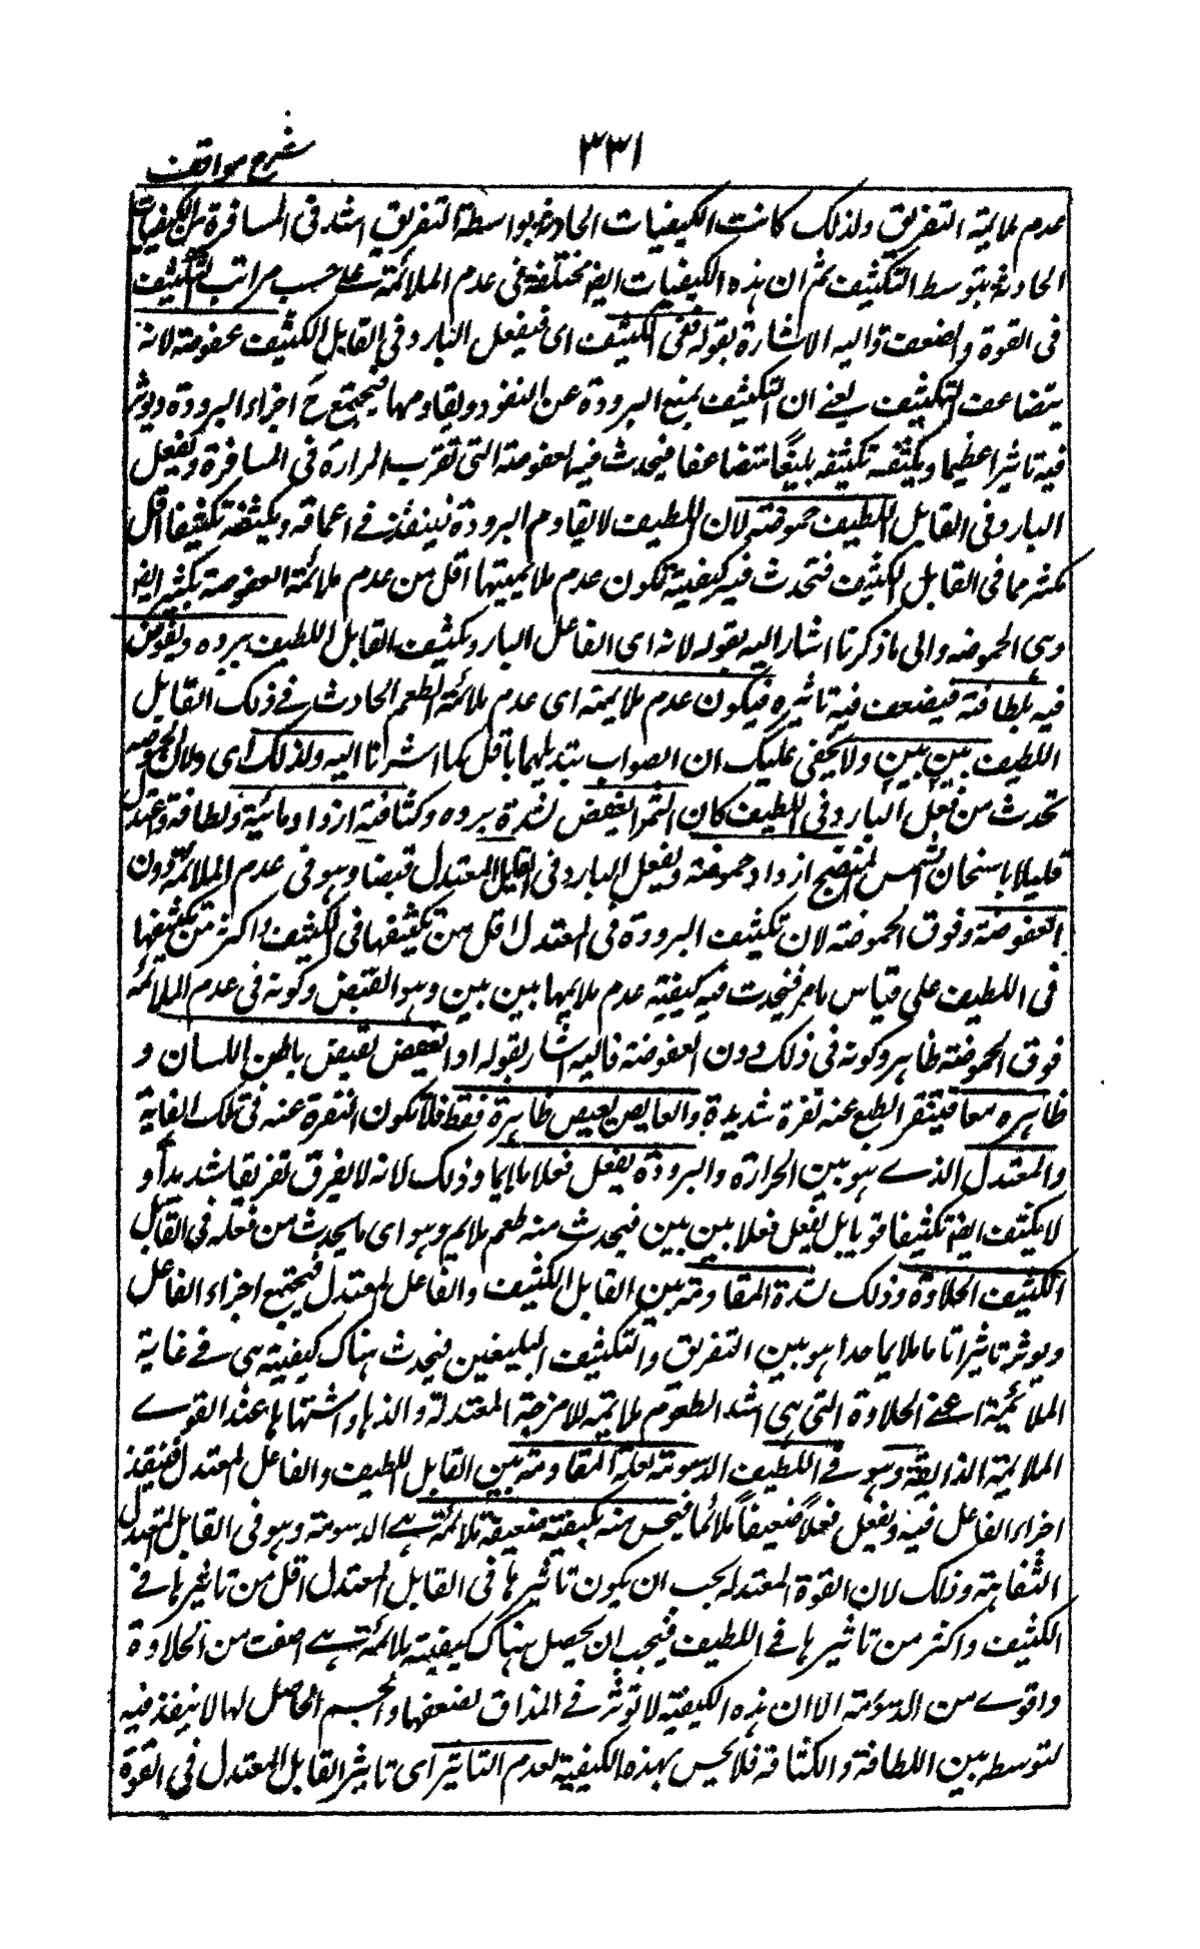 ٣٣١
شرح مواقف
عدم ملايمة التفريق ولذلك كانت الكيفيات الحادثة بواسطة التفريق اشد فى المنافرة من الكيفيات
الحادثة بتوسط التكثيف ثم ان هذه الكيفيات ايضا مختلفة فى عدم الملائمة على حسب مراتب التكثيف
فى القوة والضعف واليه الاشارة بقوله ففى الكثيف اى فيفعل البارد فى القابل الكثيف عفوصة لانه
يتضاعف التكثيف يعنے ان التكثيف يمنع البرودة عن النفوذ ويقاومها فيجتمع ح اجزاء البرودة ويوثر
فيه تاثيرا عظيما ويكثفه تكثيفا بليغًا متضاعفا فيحدث فيه العفوصة التى تقرب المرارة فى المنافرة ويفعل
البارد فى القابل اللطيف حموضة لان اللطيف لا يقاوم البرودة فينفذ فے اعماقه ويكثفه تكثيفا اقل
بكثير مما فى القابل الكثيف فتحدث فيه كيفية تكون عدم ملائميتها اقل من عدم ملائمة العفوصة بكثير ايضا
وهى الحموضة والى ما ذكرنا اشار اليه بقوله لانه اى الفاعل البارد يكثف القابل اللطيف ببرده ويغوص
فيه بلطافته فيضعف فيه تاثيره فيكون عدم ملايمته اى عدم ملائمة الطعم الحادث فے ذلك القابل
اللطيف بين بين ولا يخفى عليك ان الصواب تبديلهما باقل كما اشرنا اليه ولذلك اى ولان الحموضة
تحدث من فعل البارد فى اللطيف كان الثمر العفص لشدة برده وكثافته ازداد مائية ولطافة واعتدل
قليلا باسخان الشمس المنضج ازداد حموضة ويفعل البارد فى القابل المعتدل قبضا وهو فى عدم الملائمة دون
العفوصة وفوق الحموضة لان تكثيف البرودة فى المعتدل اقل من تكثيفها فى الكثيف واكثر من تكثيفها
فى اللطيف على قياس ما مر فيحدث فيه كيفية عدم ملايمتها بين بين وهو القبض وكونه فى عدم الملائمة
فوق الحموضة ظاهر وكونه فى ذلك دون العفوصة فاليه اشار بقوله اذ العفص يقبض باطن اللسان و
ظاهره معا فيتنفر الطبع عنه نفرة شديدة والقابض يقبض ظاهره فقط فلا تكون النفرة عنه فى تلك الغاية
والمعتدل الذے هو بين الحرارة والبرودة يفعل فعلا ملايما وذلك لانه لا يفرق تفريقا شديدا و
لا يكثف ايضا تكثيفا قويا بل يفعل فعلا بين بين فيحدث منه طعم ملايم وهو اى ما يحدث من فعله فى القابل
الكثيف الحلاوة وذلك لشدة المقاومة بين القابل الكثيف والفاعل المعتدل فيجتمع اجزاء الفاعل
ويوثر تاثيرا تاما ملايما جدا هو بين التفريق والتكثيف البليغين فيحدث هناك كيفية هى فے غاية
الملائمية اعنے الحلاوة التى هى اشد الطعوم ملائمة للامزجة المعتدلة والذها واشتهاها عند القوے
الملايمة الذايقة وهو فے اللطيف الدسومة لقلة المقاومة بين القابل اللطيف والفاعل المعتدل فينفذ
اجزاء الفاعل فيه ويفعل فعلاً ضعيفاً ملائما فيحس منه بكيفية ضعيفة ملائمة هے الدسومة وهو فى القابل المعتدل
التفاهة وذلك لان القوة المعتدلة يجب ان يكون تاثيرها فى القابل المعتدل اقل من تاثيرها فے
الكثيف واكثر من تاثيرها فے اللطيف فيجب ان يحصل هناك كيفية ملائمة هے اضعف من الحلاوة
واقوے من الدسومة الا ان هذه الكيفية لا توثر فے المذاق لضعفها والجسم الحامل لها لا ينفذ فيه
لتوسطه بين اللطافة والكثافة فلا يحس بهذه الكيفية لعدم التاثير اى تاثير القابل المعتدل فى القوة